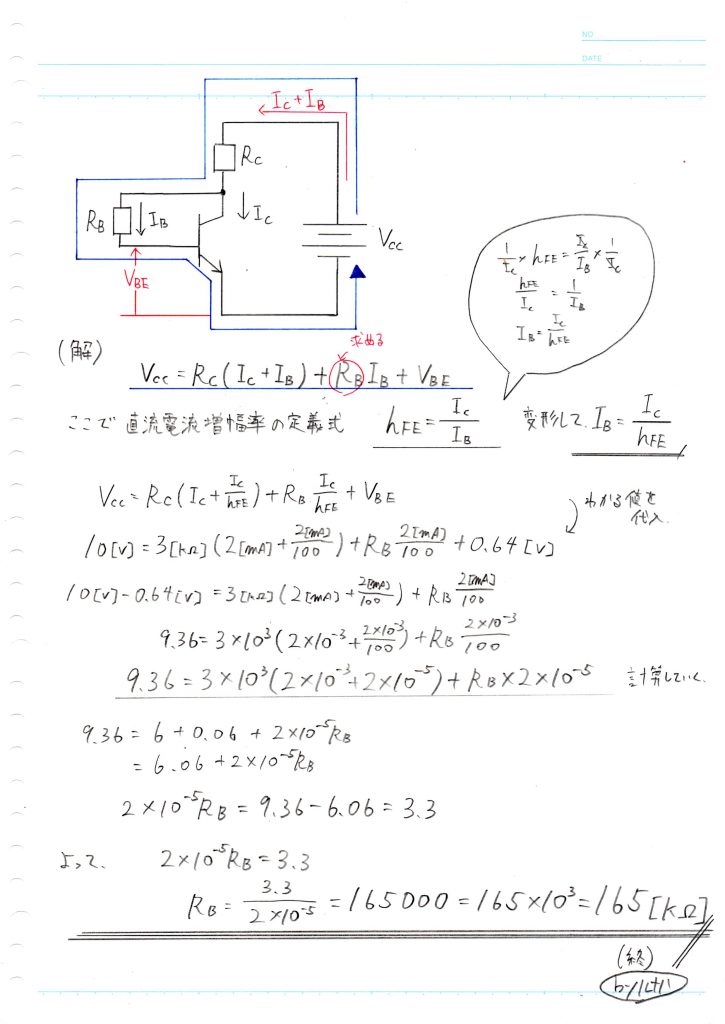 NO.
DATE
I_C + I_B
R_C
R_B
I_B
I_C
V_CC
V_BE
1/I_C × h_FE = I_C/I_B × 1/I_C
h_FE/I_C = 1/I_B
I_B = I_C/h_FE
(解)
求める
V_CC = R_C (I_C + I_B) + R_B I_B + V_BE
ここで 直流電流増幅率の定義式 h_FE = I_C/I_B 変形して. I_B = I_C/h_FE
V_CC = R_C (I_C + I_C/h_FE) + R_B I_C/h_FE + V_BE
わかる値を
代入.
10[V] = 3[kΩ] (2[mA] + 2[mA]/100) + R_B 2[mA]/100 + 0.64[V]
10[V] - 0.64[V] = 3[kΩ] (2[mA] + 2[mA]/100) + R_B 2[mA]/100
9.36 = 3×10^3 (2×10^-3 + 2×10^-3/100) + R_B 2×10^-3/100
9.36 = 3×10^3 (2×10^-3 + 2×10^-5) + R_B × 2×10^-5 計算していく.
9.36 = 6 + 0.06 + 2×10^-5 R_B
= 6.06 + 2×10^-5 R_B
2×10^-5 R_B = 9.36 - 6.06 = 3.3
よって. 2×10^-5 R_B = 3.3
R_B = 3.3/2×10^-5 = 165000 = 165×10^3 = 165[kΩ]
(終)